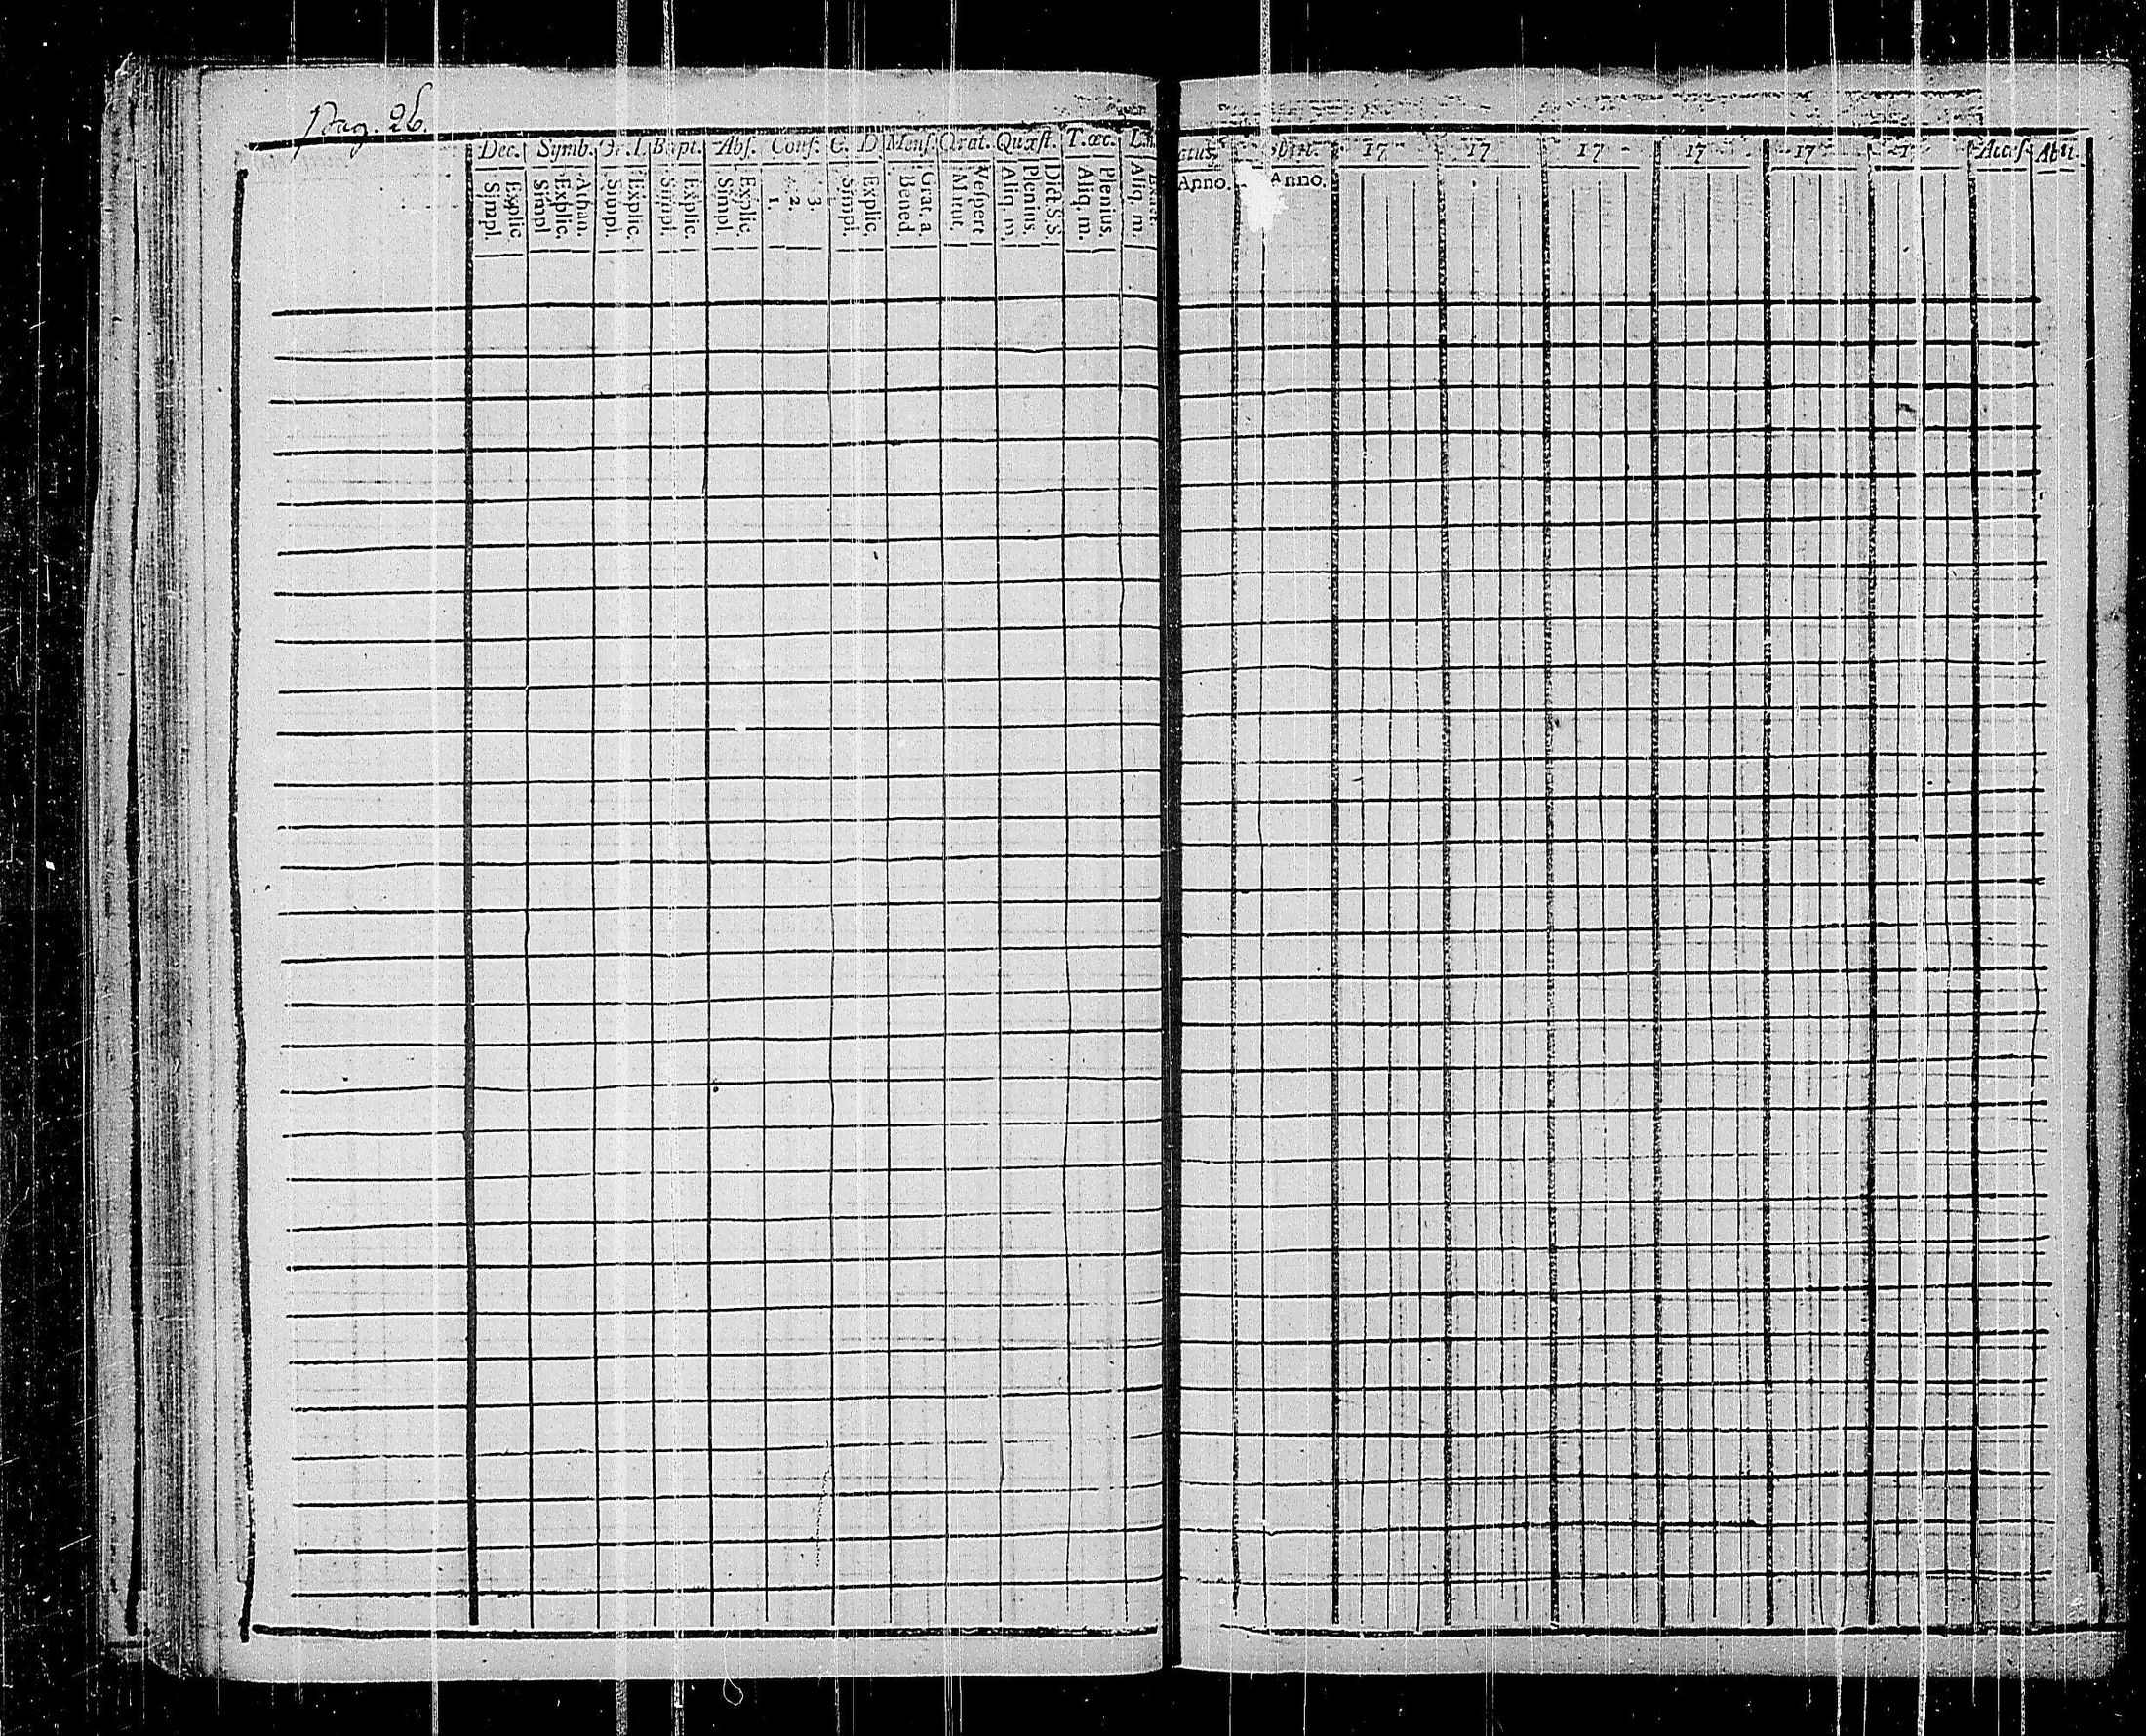 Pag. 26.
Dec. Symb. Or. D Bapt. Abs. Conf. C. D Mens. Orat. Quæst. T. œc. 17 17 17 17 17 17 Accesſ Abii
Simpl. Explic. Simpl Explic. Athan. Simpl. Explic. Simpl. Explic. Simpl Explic 1. 2. 3. Simpl. Explic Bened. Grat. a Matut. Vespere Aliq. m. Plenius. Dict. S.S Aliq. m. Plenius. Aliq. m. Anno. Anno.